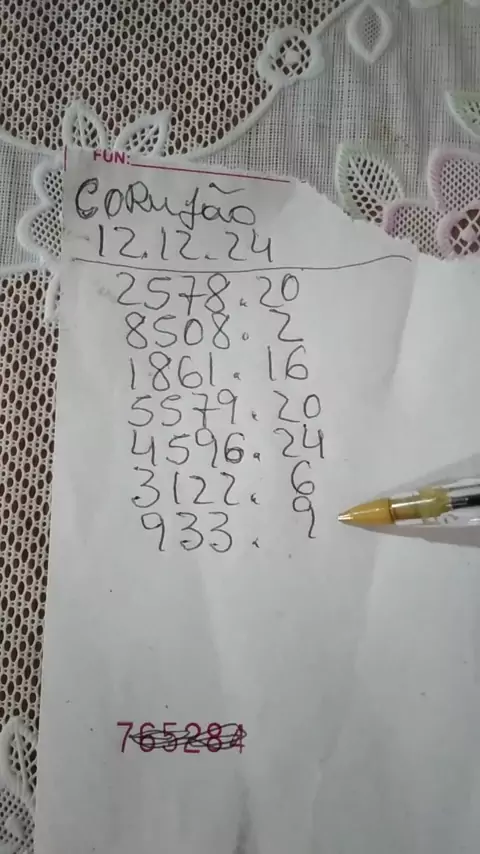 FUN:
CORUJÃO
12.12.24
2578.20
8508. 2
1861. 16
5579. 20
4596. 24
3122. 6
933. 9
765284